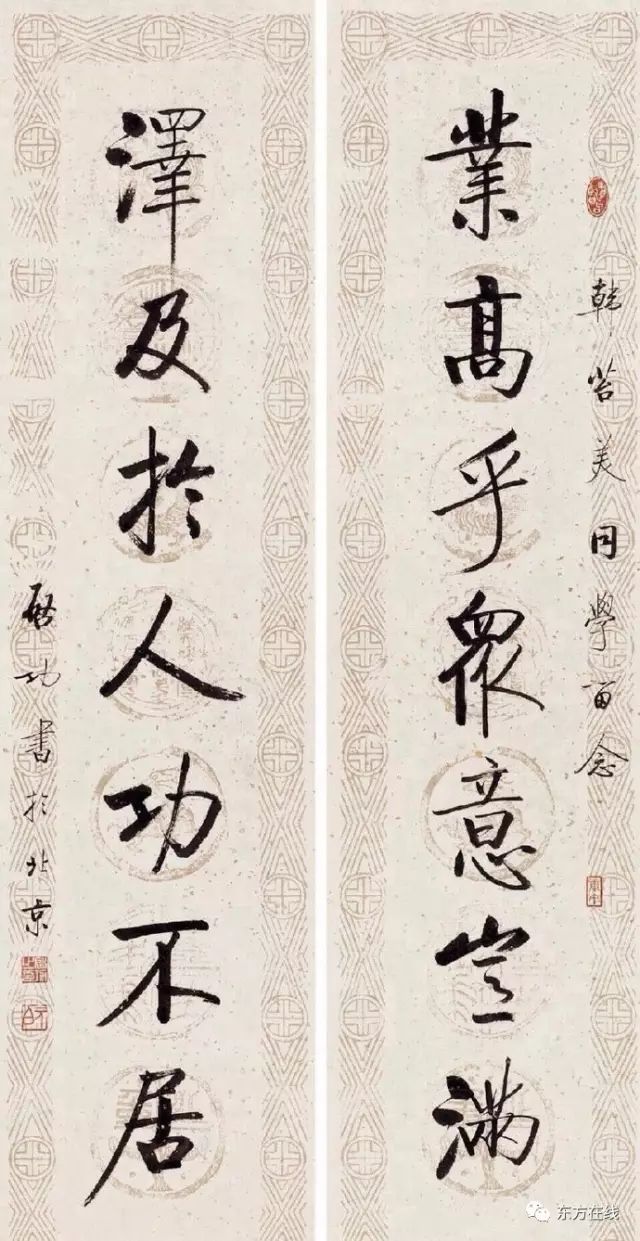 韩苕美同學留念
業高乎眾意豈滿
澤及於人功不居
啟功書於北京
东方在线